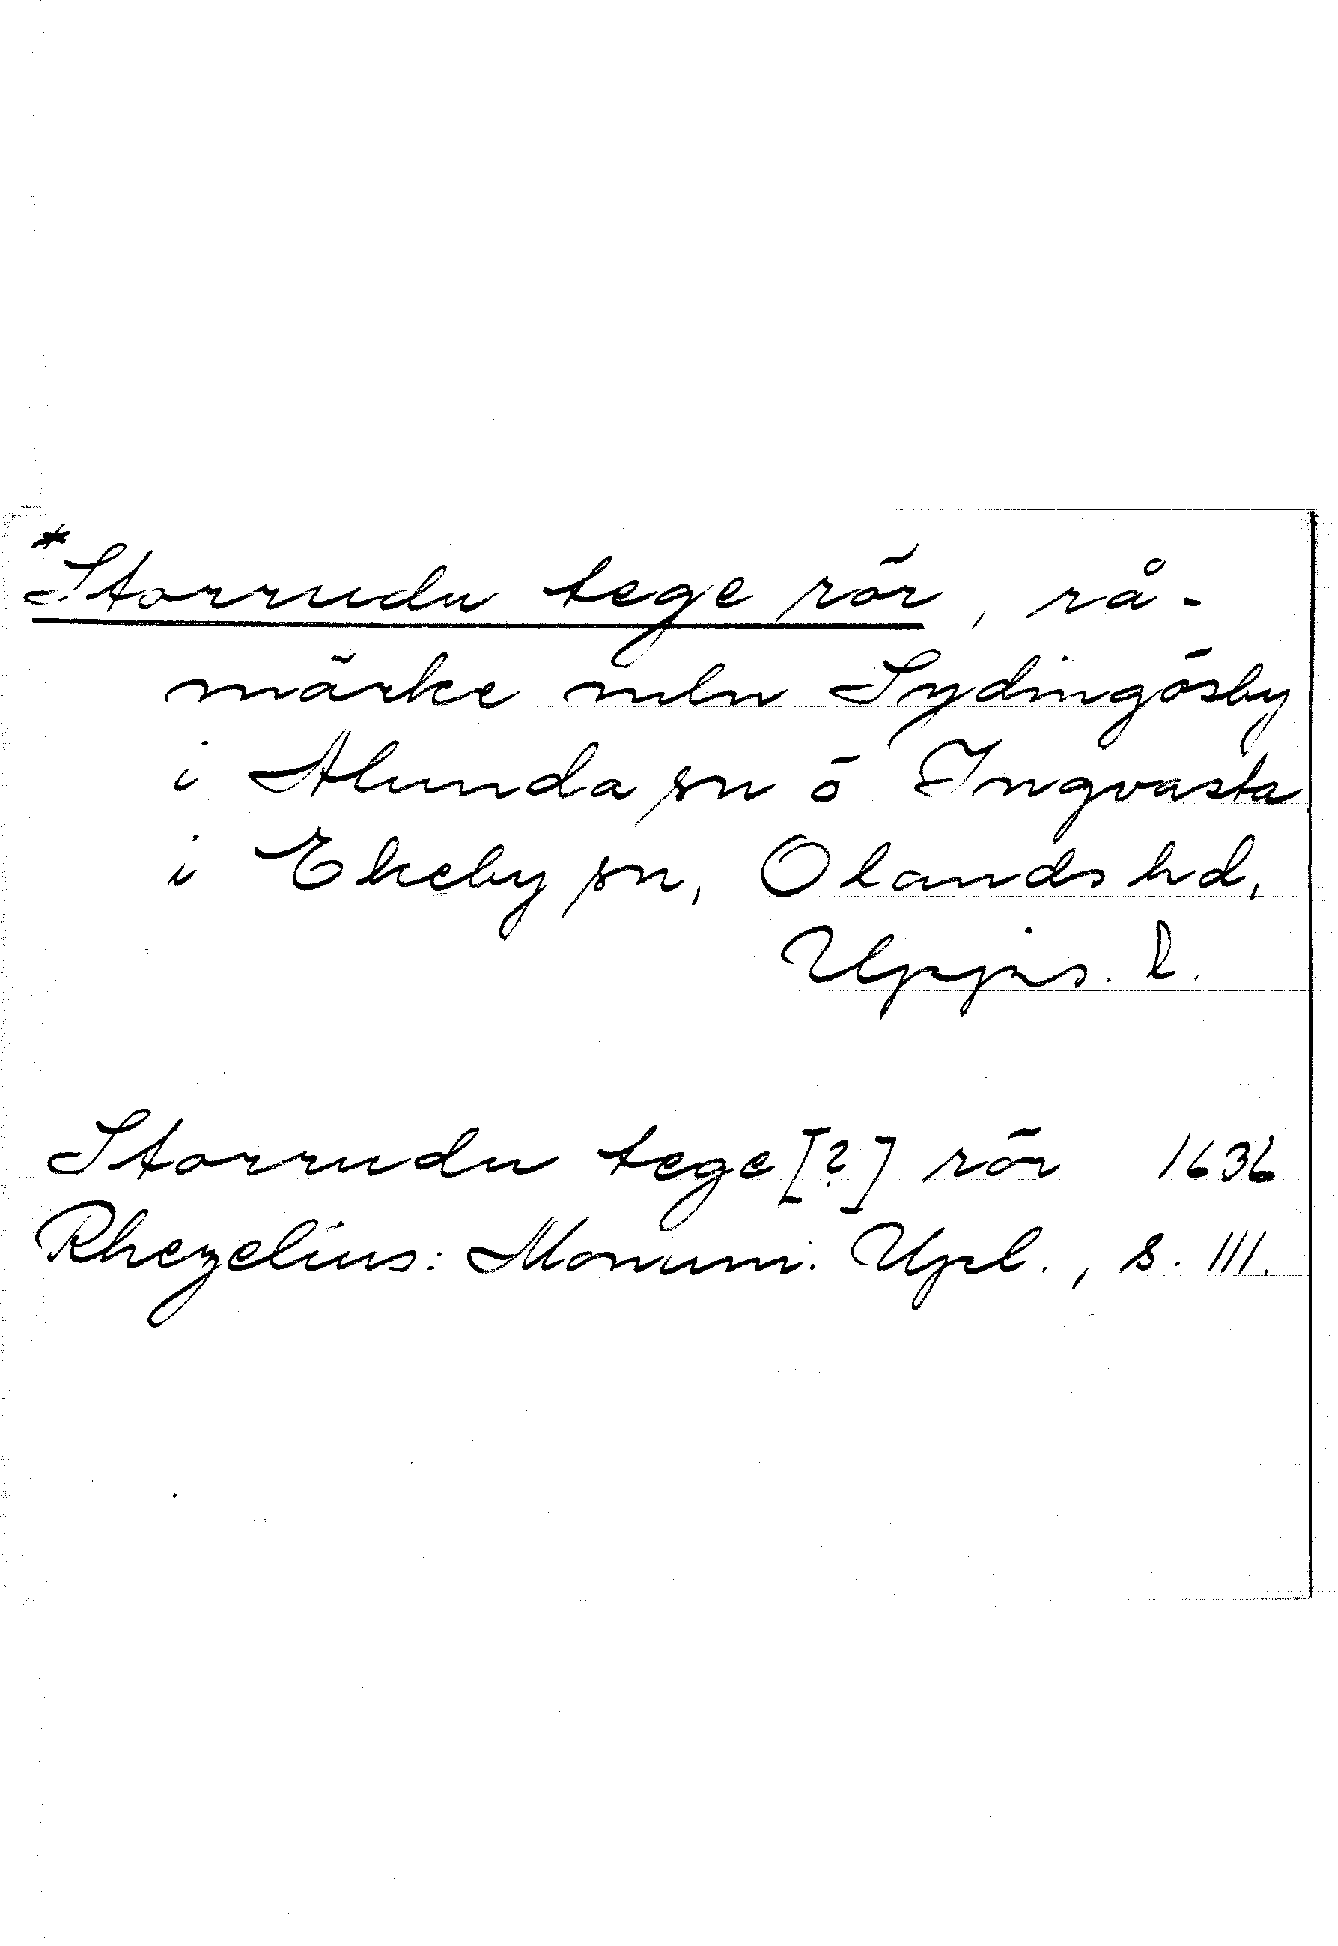 *Storrudu tege rör, rå-
märke mln Sydingösby
i Alunda sn o Ingvasta
i Ekeby sn, Olands hd,
Upps. l.
Storrudu tege [?] rör 1636
Rhezelius: Monum. Upl., s. 111.